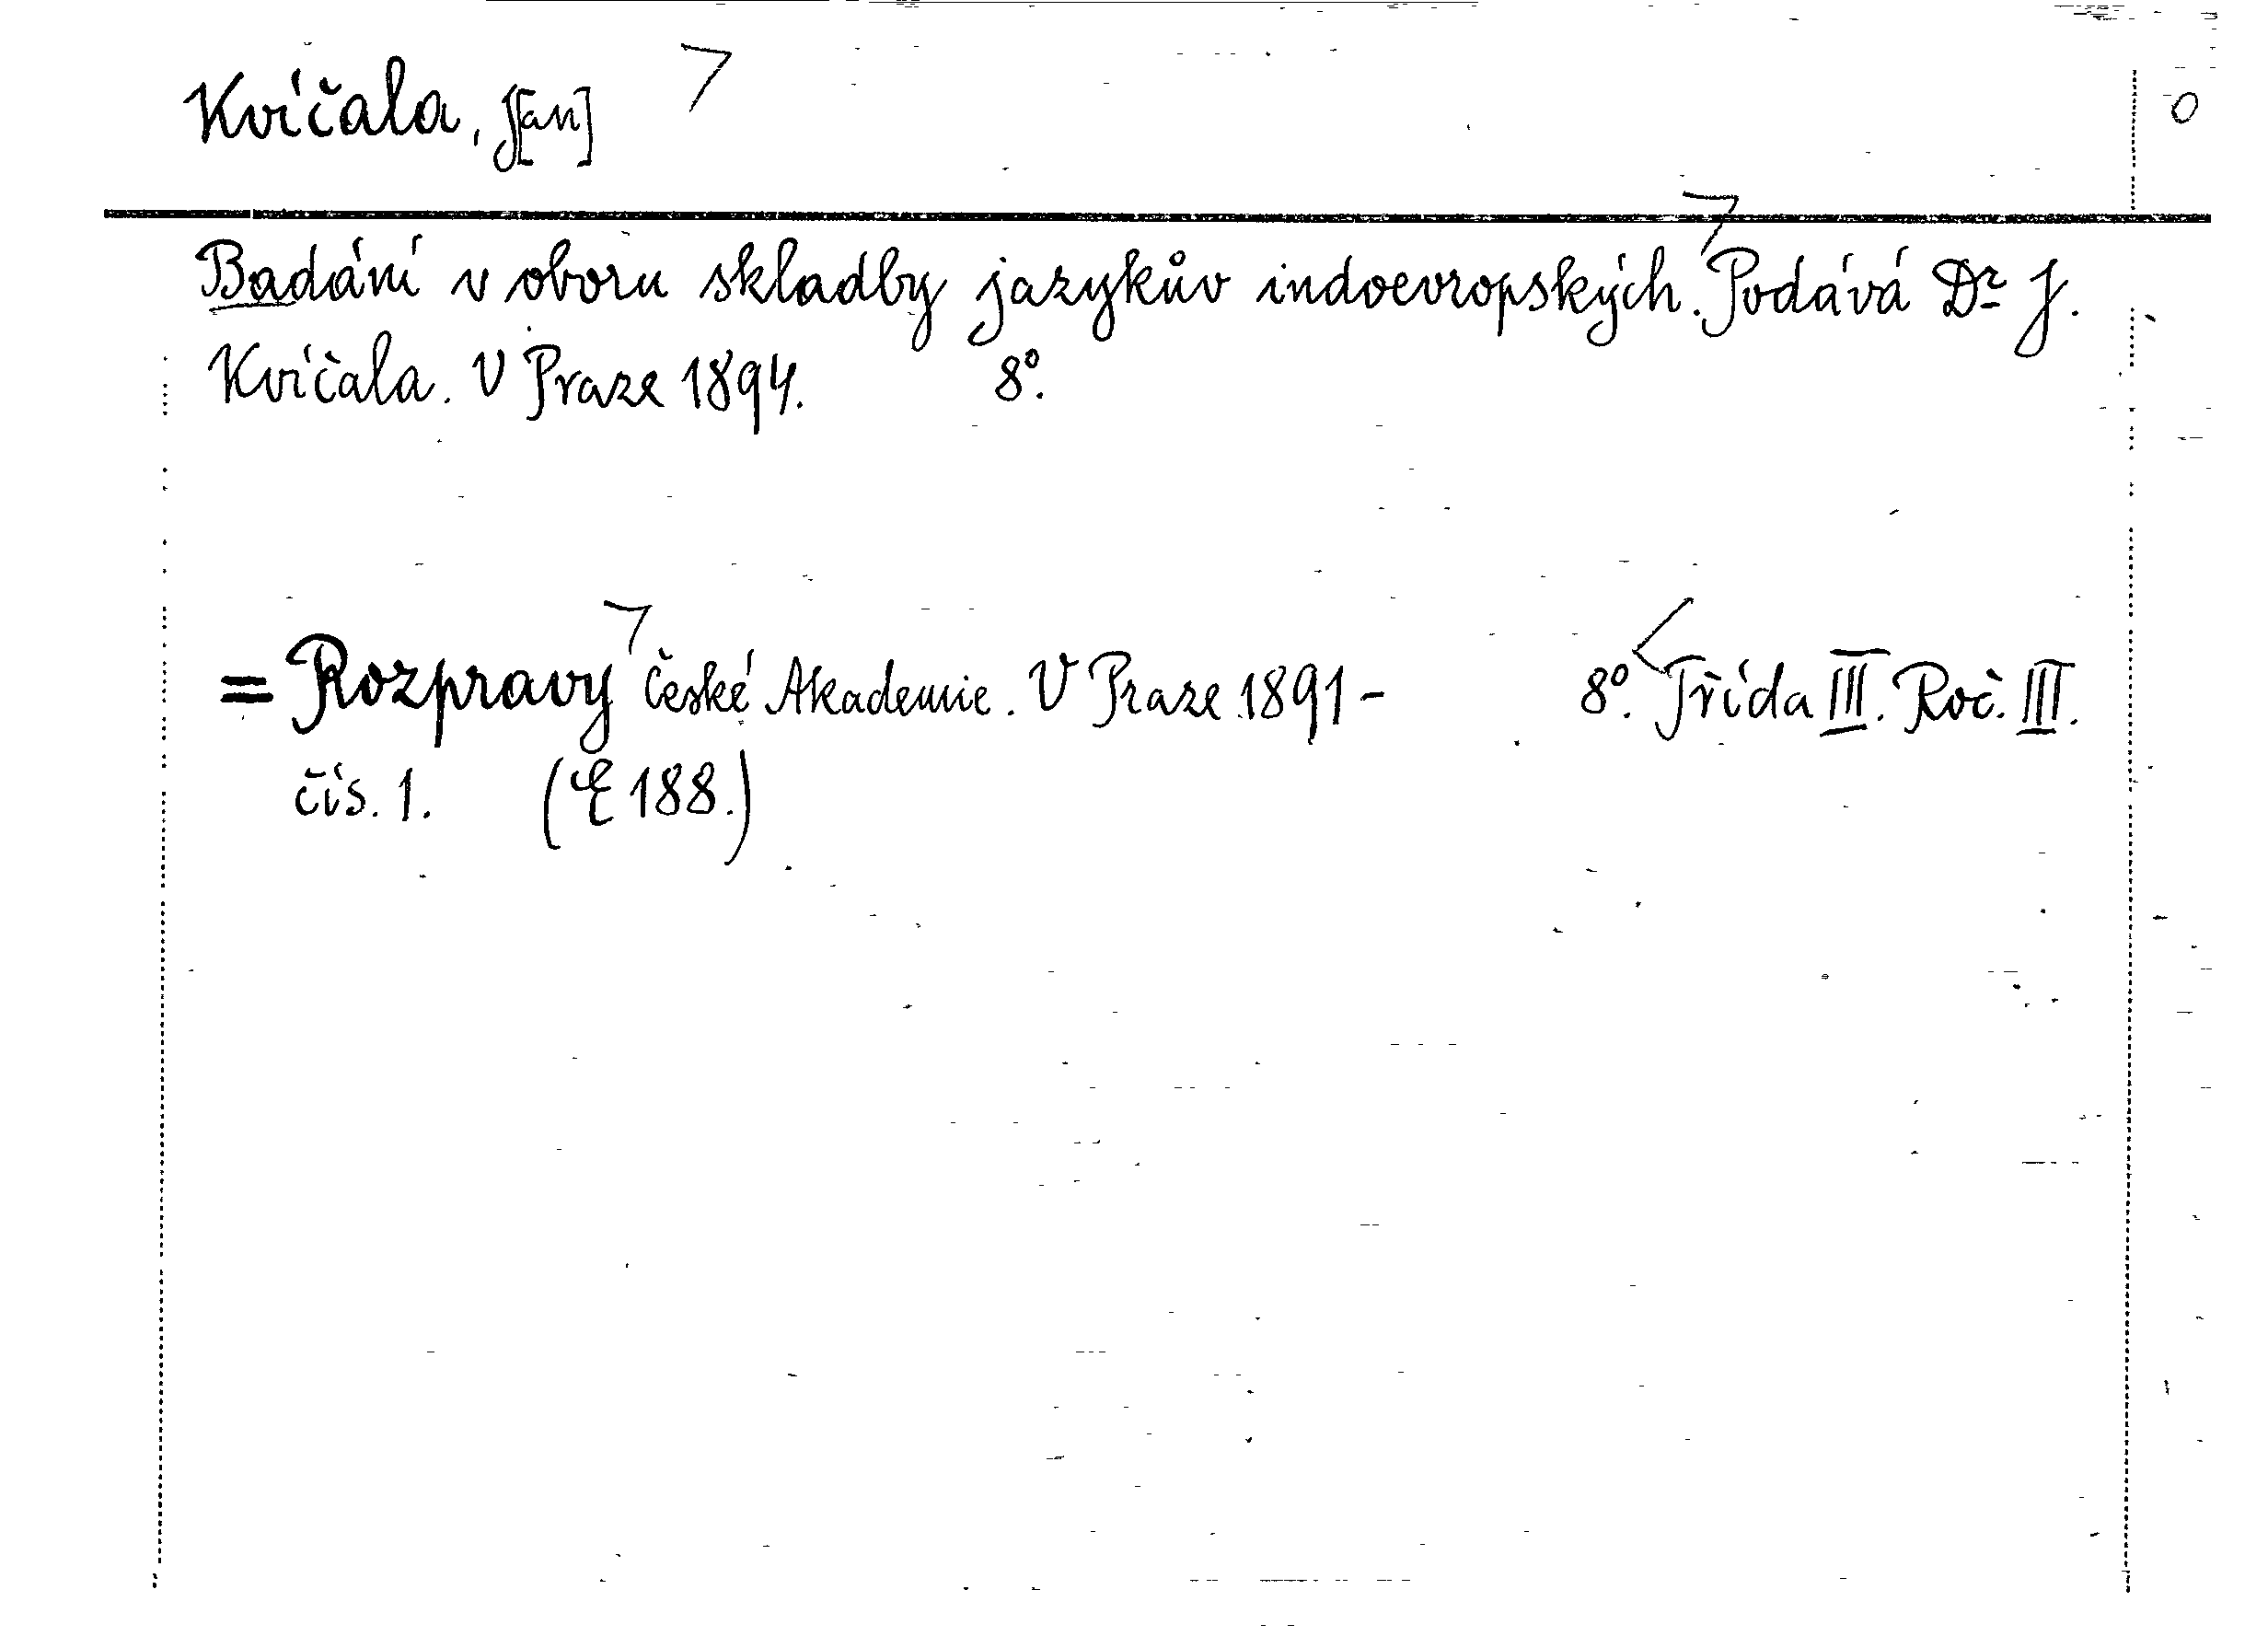 Kvíčala, J[an]
0
Badání v oboru skladby jazykův indoevropských. Podává Dr J.
Kvíčala. V Praze 1894. 8º.
= Rozpravy České Akademie. V Praze 1891 - 8º. Třída III. Roč. III.
čís. 1. (E 188.)